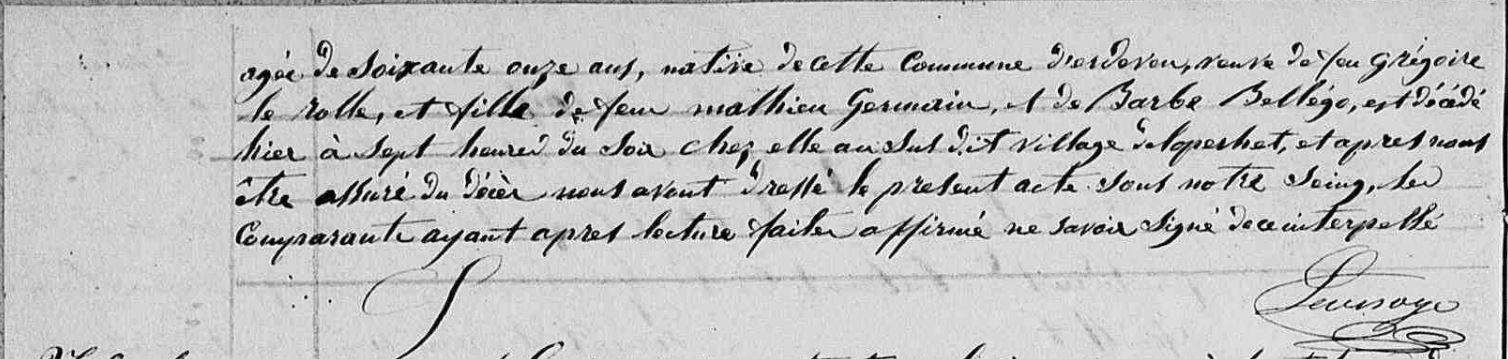 agée de soixante onze ans, native de cette Commune d'erdeven, veuve de feu grégoire
le rolle, et fille de feu mathieu Germain, et de Barbe Bellégo, est décédé
hier à Sept heures du Soir chez elle au Sus dit village de loperhet, et apres nous
être assuré du décès nous avont dressé le present acte sous notre seing, les
Comparants ayant apres lecture faites affirmé ne savoir signé de ce interpellé